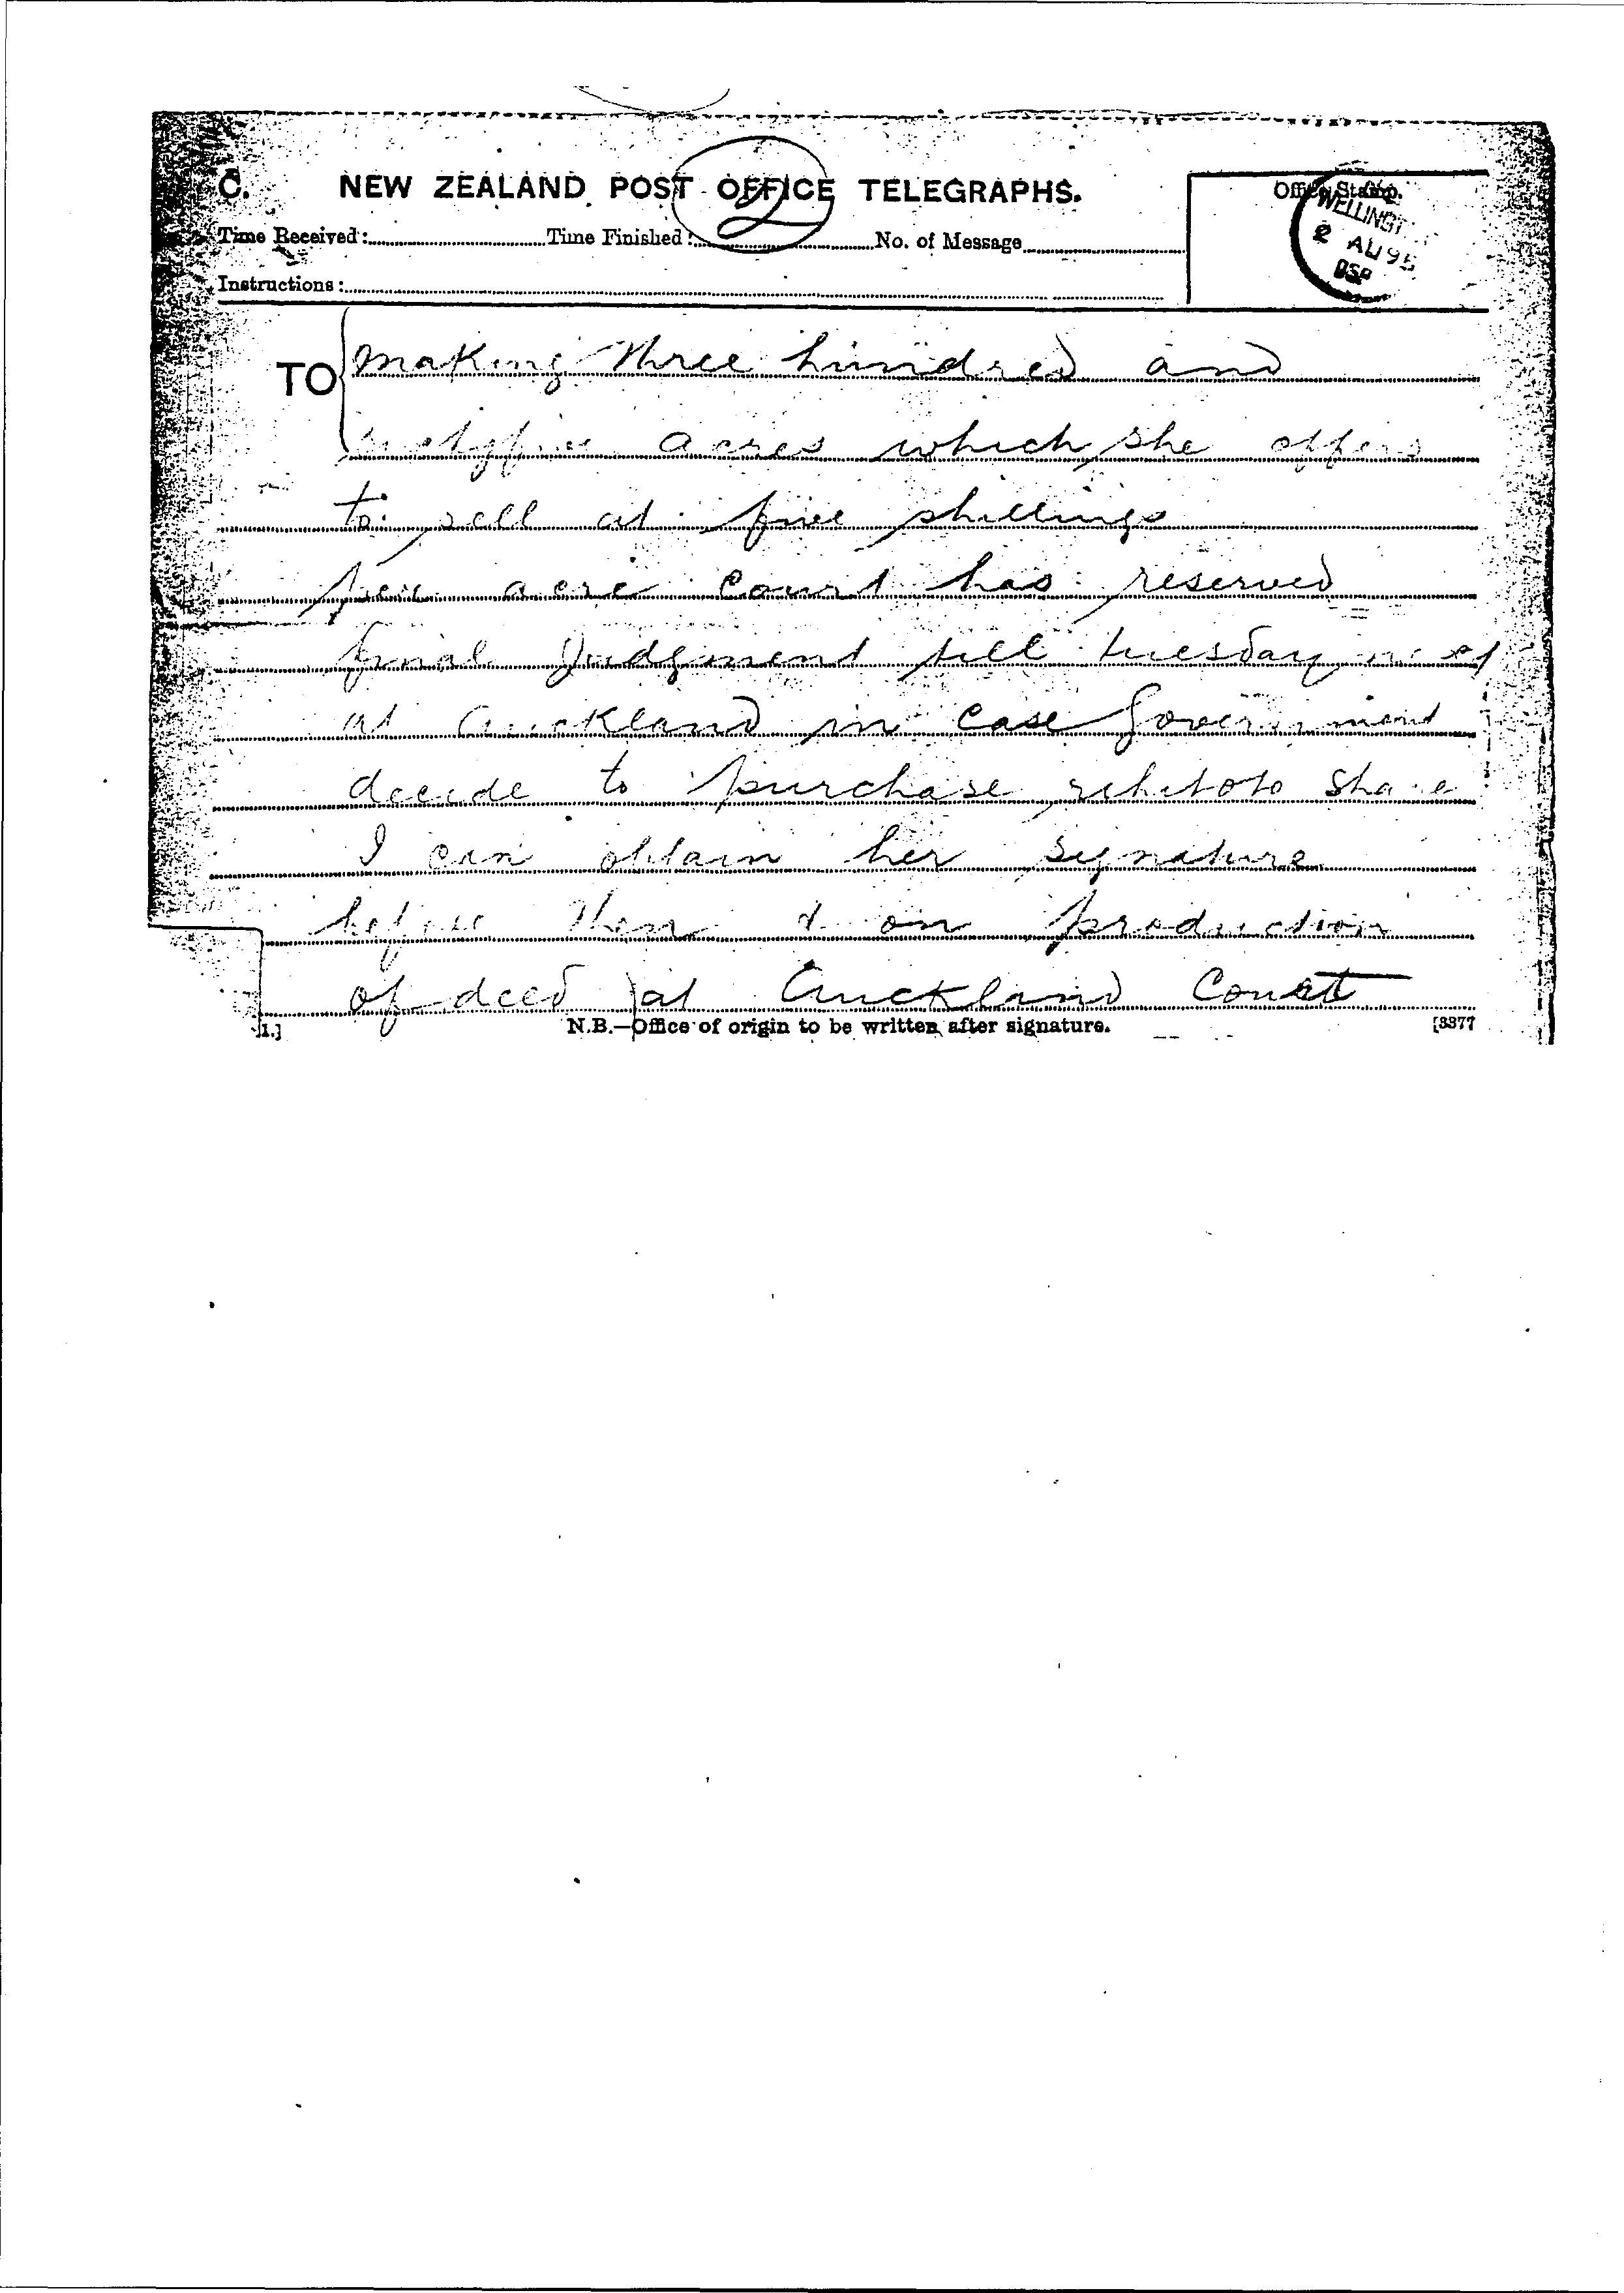 C. NEW ZEALAND POST OFFICE TELEGRAPHS.
2
Office Stamp.
WELLINGT
2 AU 95
OSP
Time Received: Time Finished: No. of Message
Instructions:
TO making three hundred and
acres which she offers
to sell at five shillings
per acre Court has reserved
final Judgment till tuesday next
at Auckland in case Government
decide to purchase share
I can obtain her signature
before then & on production
of deed at Auckland Court
1.] N.B.—Office of origin to be written after signature. [3377